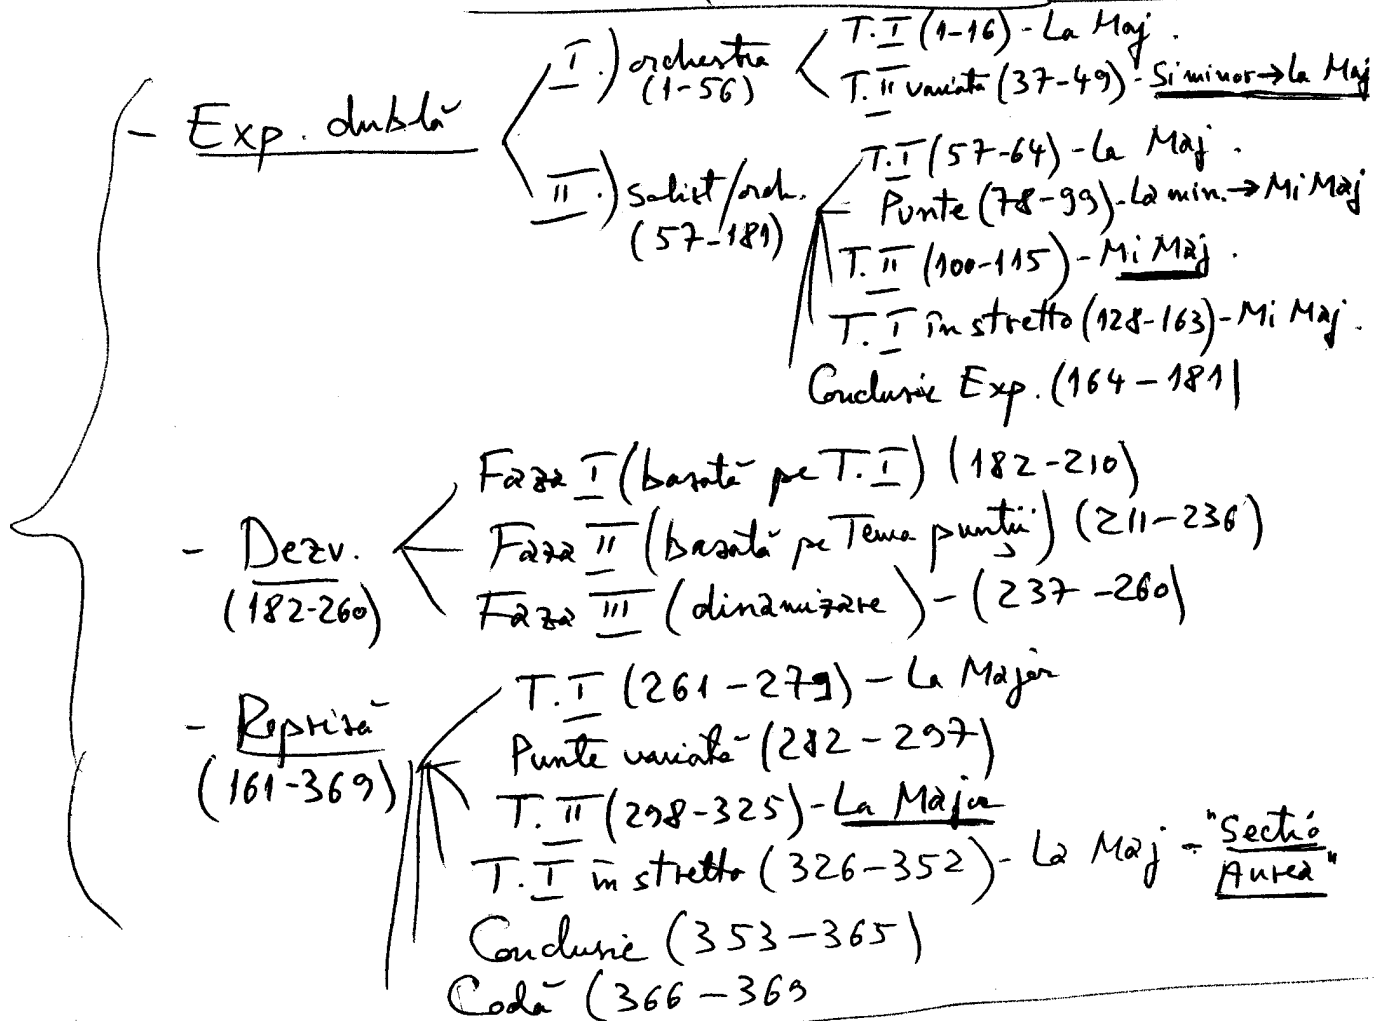 - Exp. dublă
I.) orchestra
(1-56)
T.I (1-16) - La Maj.
T.II variată (37-49) - Si minor → La Maj
II.) solist/orch.
(57-181)
T.I (57-64) - La Maj.
Punte (78-99) - La min. → Mi Maj
T.II (100-115) - Mi Maj.
T.I în stretto (128-163) - Mi Maj.
Concluzie Exp. (164-181)
- Dezv.
(182-260)
Faza I (bazată pe T.I) (182-210)
Faza II (bazată pe Tema punții) (211-236)
Faza III (dinamizare) - (237-260)
- Repriză
(161-369)
T.I (261-279) - La Major
Punte variată (282-297)
T.II (298-325) - La Major
T.I în stretto (326-352) - La Maj - "Sectio
Aurea"
Concluzie (353-365)
Codă (366-369